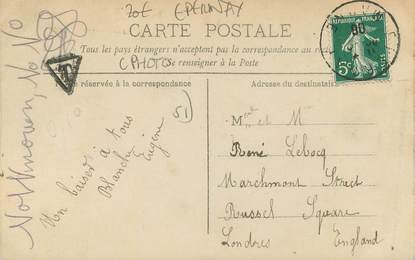 ZOE EPERNAY
CARTE POSTALE
Tous les pays étrangers n'acceptent pas la correspondance au
CPHOTO
se renseigner à la Poste
réservée à la correspondance
Adresse du destinataire
REPUBLIQUE FRANÇAISE
5c
POSTES
T
51
Not Known, No No
Un baiser à tous
Blanche Eugène
et
René Lebocq
Marchmont Street
Russel Square
Londres England